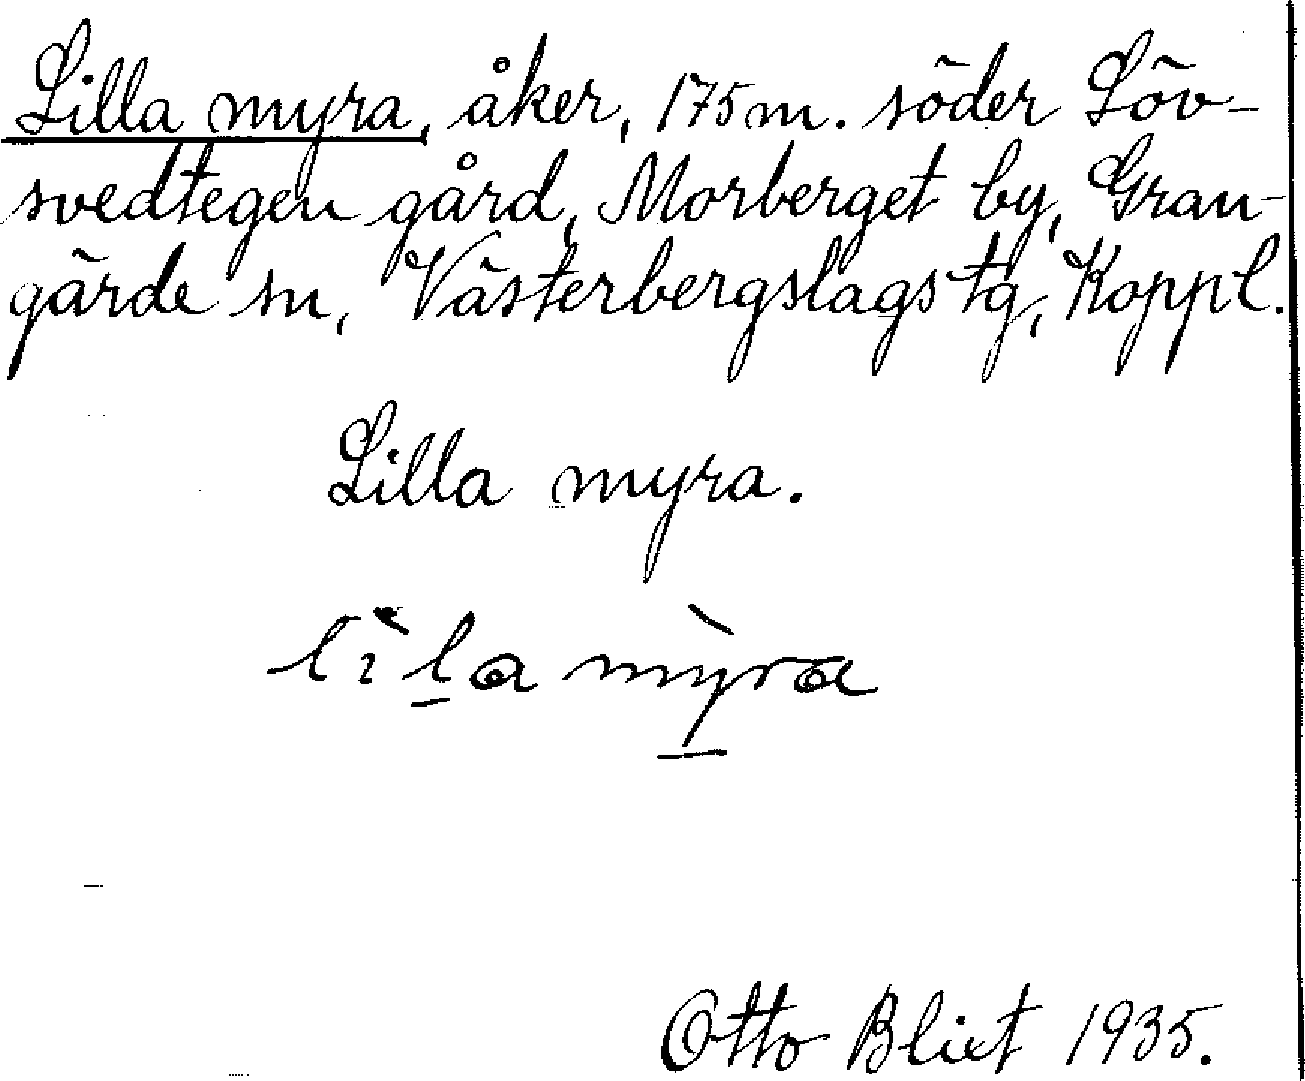 Lilla myra, åker, 175 m. söder Löv-
svedtegen gård, Morberget by, Gran-
gärde sn, Västerbergslags tg, Koppl.
Lilla myra.
lìla mỳra
Otto Blixt 1935.